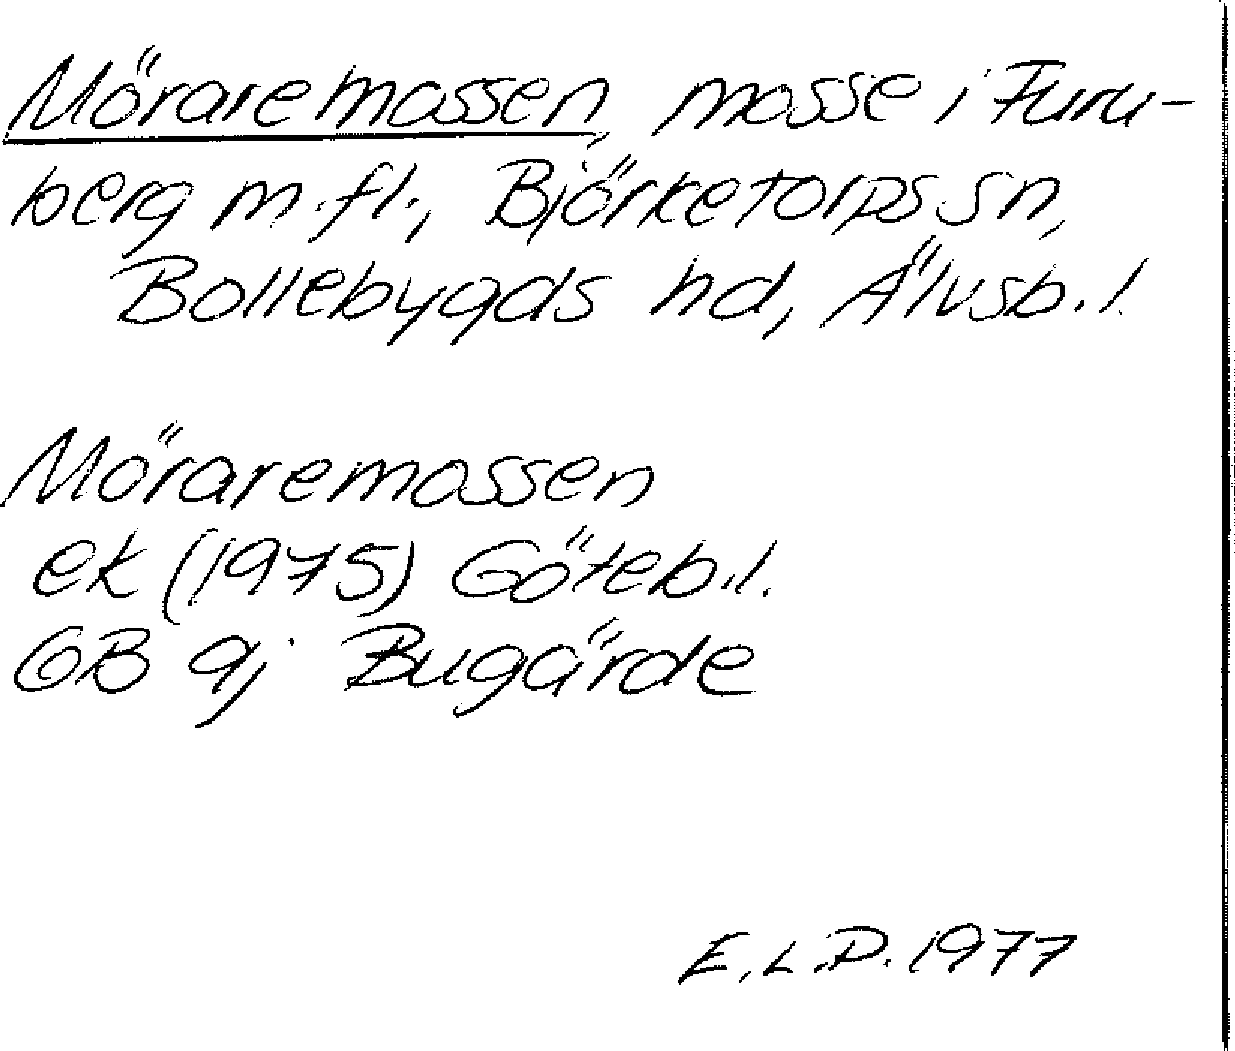 Möraremossen, mosse i Furu-
berg m.fl., Björketorps sn,
Bollebygds hd, Älvsb.l.
Möraremossen
ek (1975) Göteb.l.
GB 9j Bugärde
E.L.D. 1977